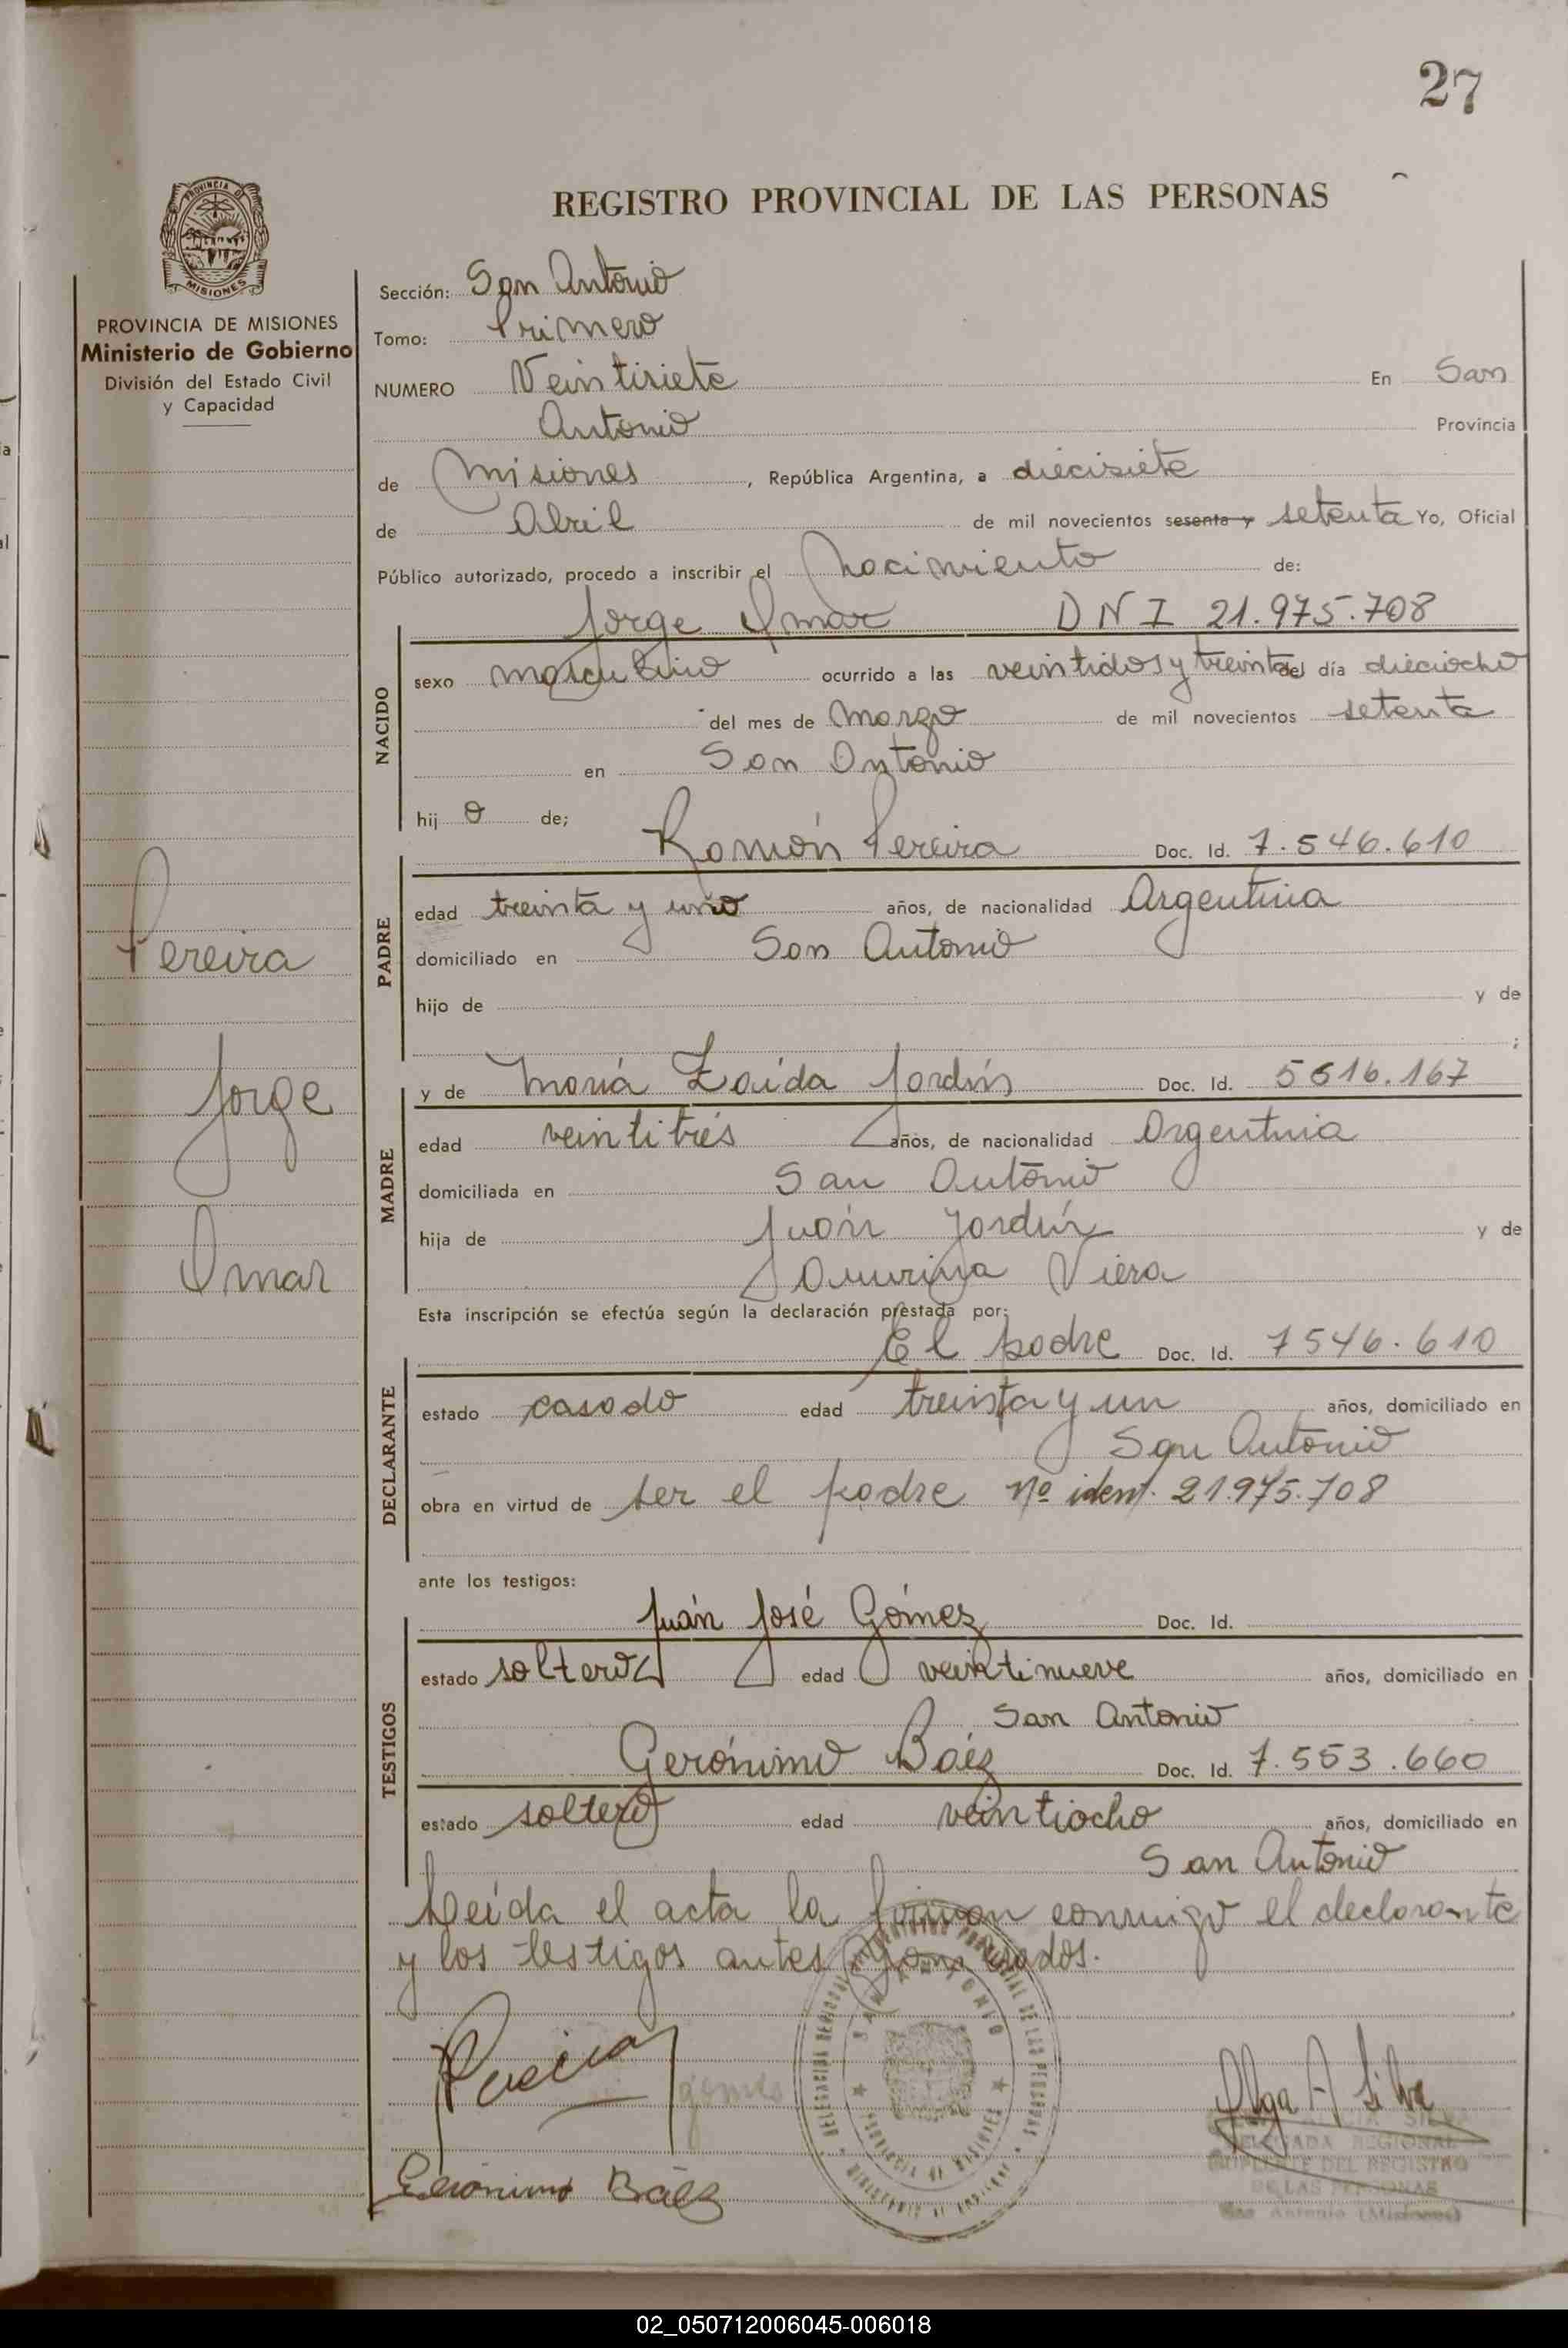 27
REGISTRO PROVINCIAL DE LAS PERSONAS
PROVINCIA DE
MISIONES
PROVINCIA DE MISIONES
Ministerio de Gobierno
División del Estado Civil
y Capacidad
Sección: San Antonio
Tomo: Primero
NUMERO Veintisiete En San
Antonio Provincia
de Misiones, República Argentina, a diecisiete
de Abril de mil novecientos sesenta y setenta Yo, Oficial
Público autorizado, procedo a inscribir el nacimiento de:
Jorge Omar DNI 21.975.708
NACIDO
sexo masculino ocurrido a las veintidos y treinta del día dieciocho
del mes de Marzo de mil novecientos setenta
en San Antonio
hij o de;
Ramón Pereira Doc. Id. 7.546.610
PADRE
edad treinta y uno años, de nacionalidad Argentina
domiciliado en San Antonio
hijo de y de
;
Pereira
Jorge
Omar
y de María Zaida Jordín Doc. Id. 5616.167
MADRE
edad veintitrés años, de nacionalidad Argentina
domiciliada en San Antonio
hija de Juán Jordín y de
Viera
Esta inscripción se efectúa según la declaración prestada por:
El padre Doc. Id. 7546.610
DECLARANTE
estado casado edad treinta y un años, domiciliado en
San Antonio
obra en virtud de ser el padre nº ident. 21.975.708
ante los testigos:
Juán José Gómez Doc. Id.
TESTIGOS
estado soltero edad veintinueve años, domiciliado en
San Antonio
Gerónimo Báez Doc. Id. 7.553.660
estado soltero edad veintiocho años, domiciliado en
San Antonio
Leída el acta la firman conmigo el declarante
y los testigos antes nombrados.
Pereira
gomes
Gerónimo Báez
SAN ANTONIO
PROVINCIA DE MISIONES
Olga A Silva
ALICIA SILVA
DELEGADA REGIONAL
SUPLENTE DEL REGISTRO
DE LAS PERSONAS
San Antonio (Misiones)
02_050712006045-006018